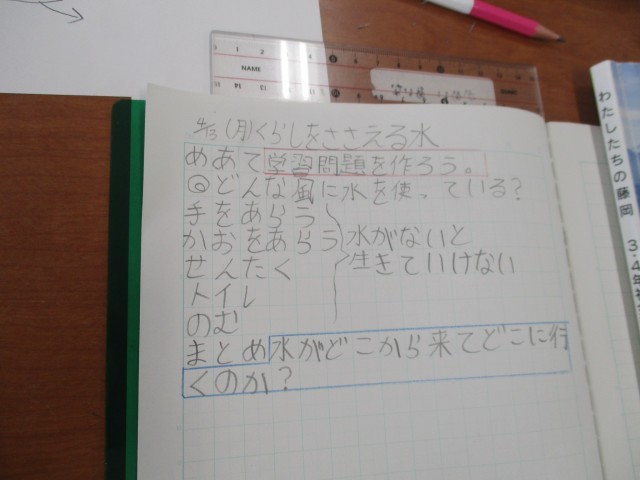 (月)くらしをささえる水
めあて 学習問題を作ろう。
◎どんな風に水を使っている?
手をあらう
かおをあらう 水がないと
せんたく 生きていけない
トイレ
のむ
まとめ 水がどこから来てどこに行
くのか?
わたしたちの藤岡 3・4年
NAME